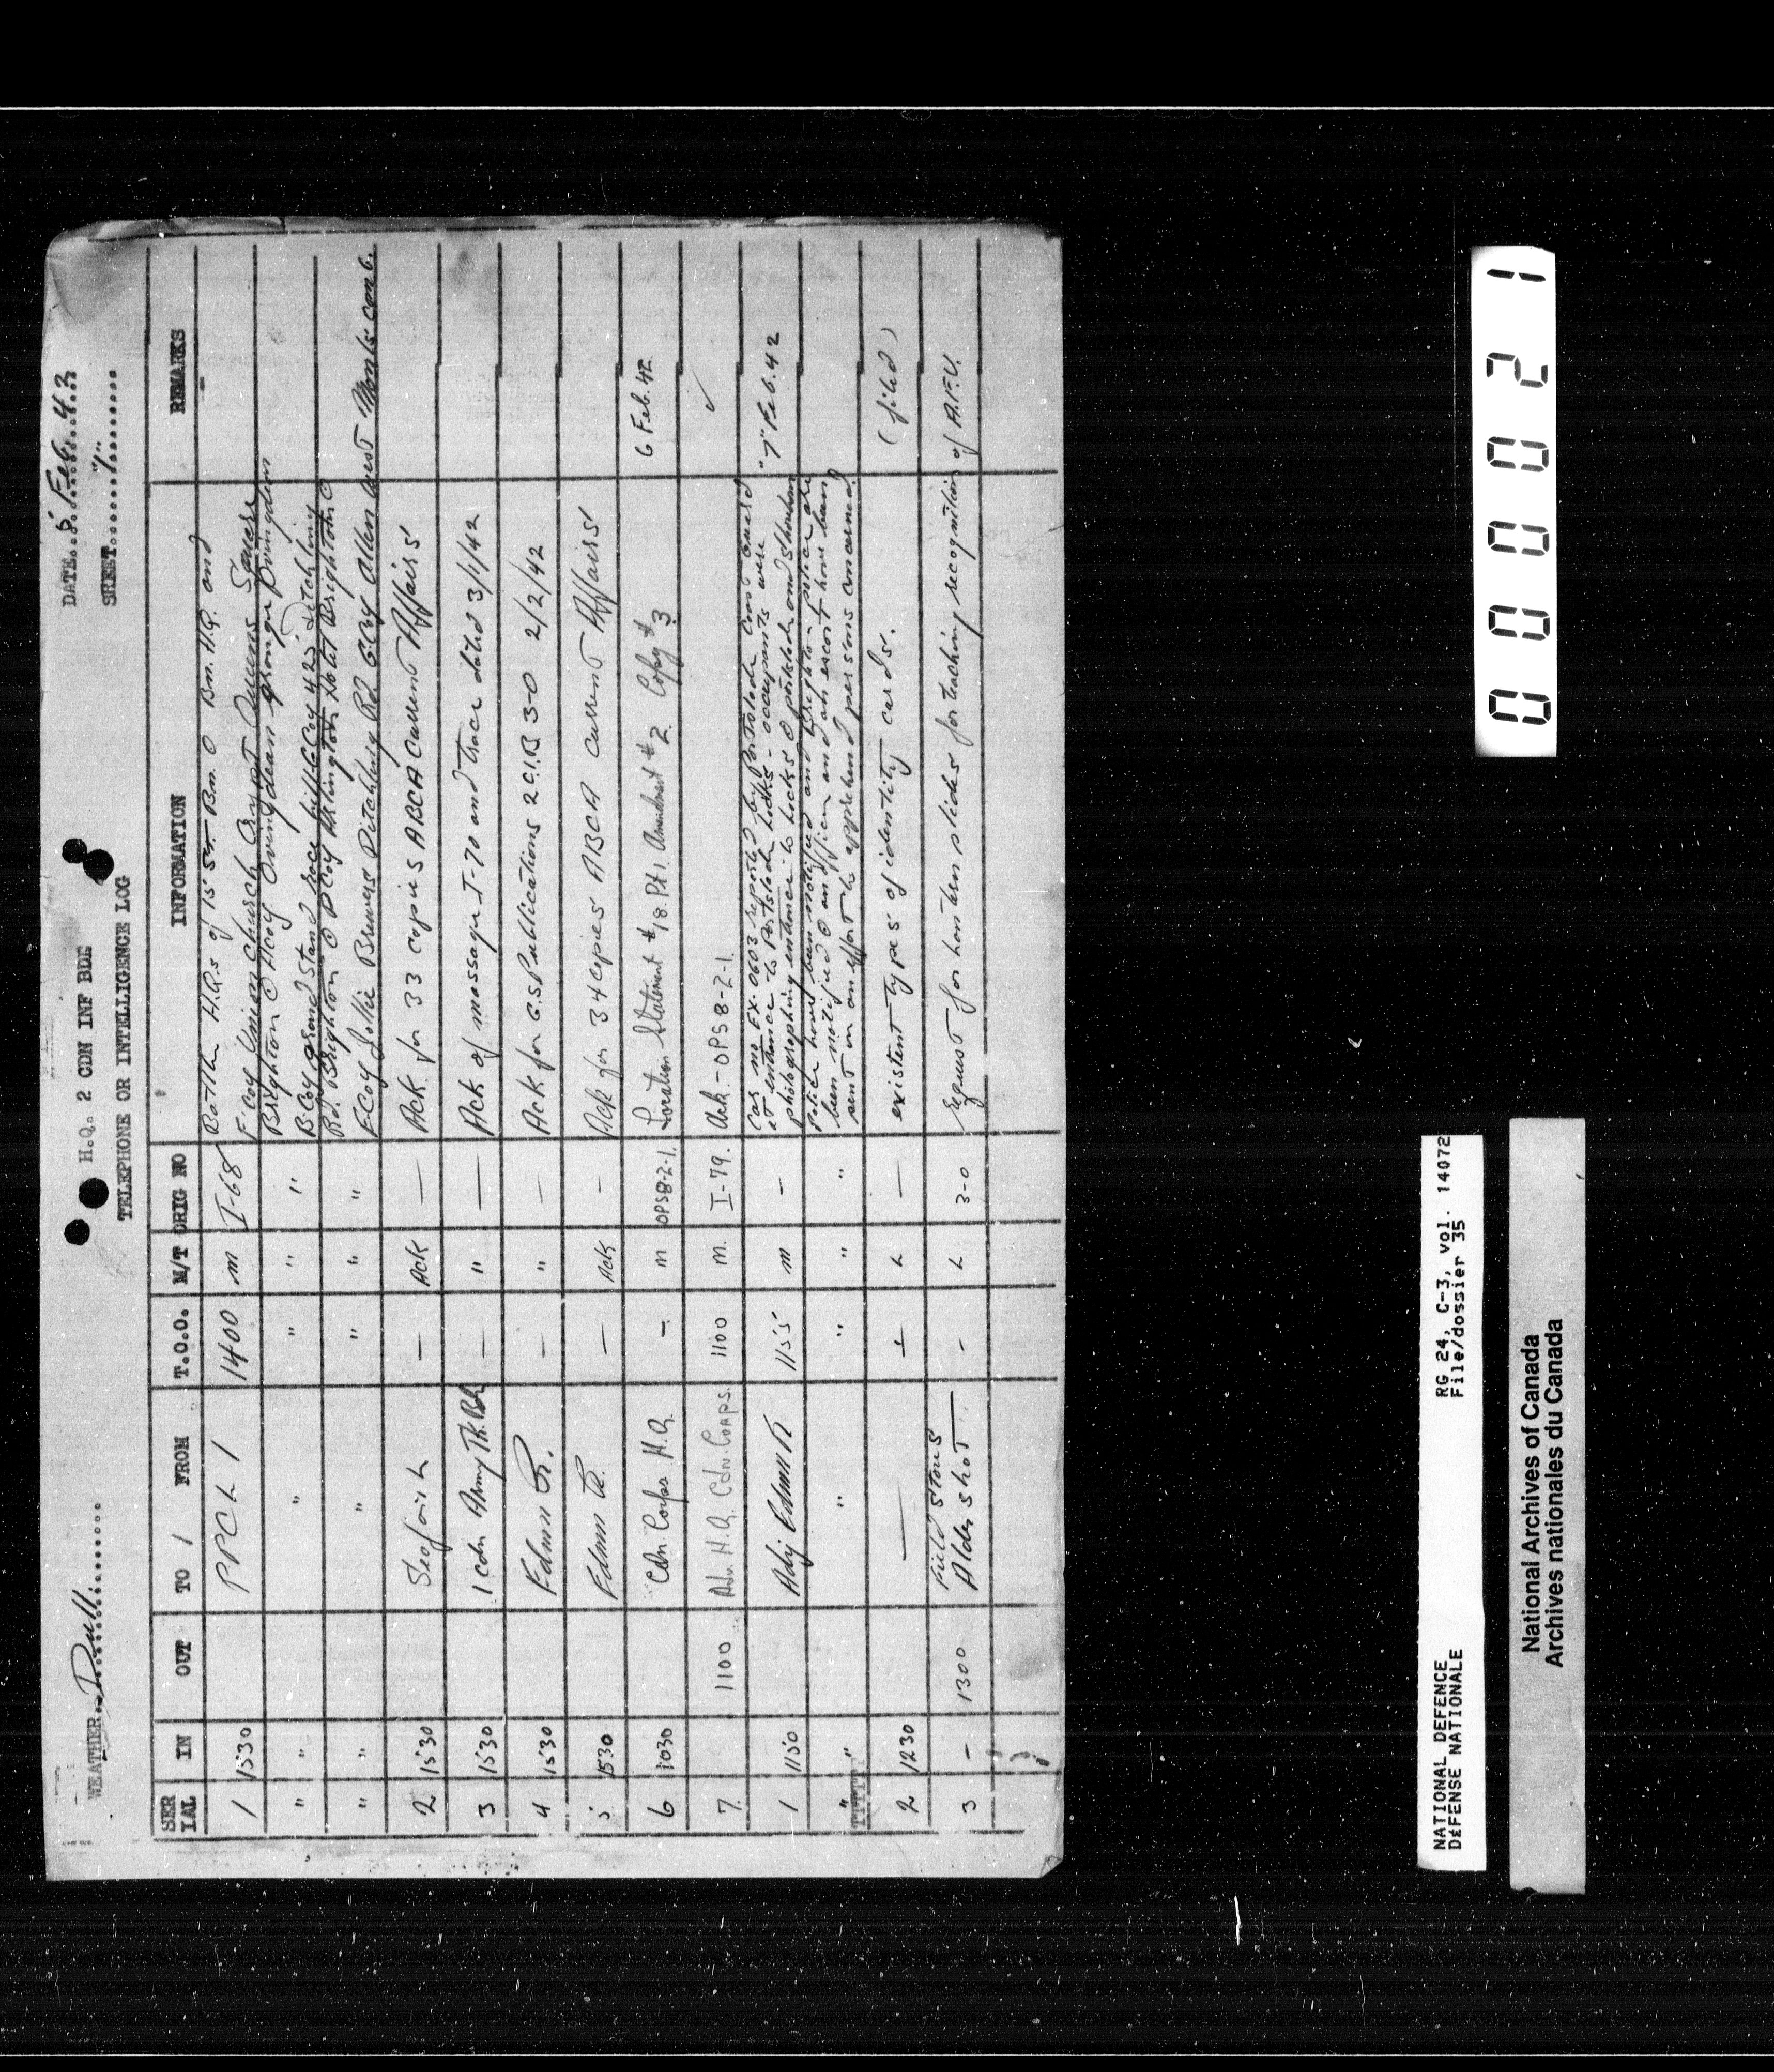 H.Q. 2 CDN INF BDE
TELEPHONE OR INTELLIGENCE LOG
WEATHER Dull
DATE 5 Feb. 42
SHEET "1"
SER IAL IN OUT TO / FROM T.O.O. M/T ORIG NO INFORMATION REMARKS
1 1530 PPCL I 1400 m I-68 Battle H.Q.s of 15 Bn. Bn. H.Q. and
F Coy Union Church Queens Square
" " " " " " Brighton A Coy Ovingdean grange Ovingdean
B Coy grand Stand race hill C Coy 42 Ditchling
" " " " " " Rd. Brighton D Coy Hotel Brighton
E Coy Brewers Ditchling Rd G Coy Allen West Monks comb.
2 1530 Seaforth — Ack — Ack for 33 copies ABCA Current Affairs
3 1530 1 Cdn Army Tk. Bde — " — Ack of message I-70 and trace dated 3/1/42
4 1530 Edmn R. — " — Ack for G.S Publications 2 C.I.B 3-0 2/2/42
5 1530 Edmn R. — Ack — Ack for 34 copies ABCA Current Affairs
6 1030 Cdn. Corps H.Q. — m OPS8-2-1. Location Statement #18. Pt 1. Amendment #2 Copy #3 6 Feb. 42
7. 1100 Adv. H.Q. Cdn. Corps. 1100 m. I-79. Ack.-OPS 8-2-1. ✓
1 1150 Adj Edmn R 1155 m — Car no EX-0603 reported by Portslade
at entrance to Portslade locks - occupants were "7" Feb. 42
photographing entrance to locks
" " " " " " Police have been notified and Brighton police
been notified an officer and an escort have been
sent in an effort to apprehend persons concerned.
2 1230 — L — existent types of identity cards. (filed)
3 — 1300 Field Stores
Aldershot — L 3-0 request for lantern slides for teaching recognition of A.F.V.
0 0 0 0 2 1
NATIONAL DEFENCE RG 24, C-3, vol. 14072
DÉFENSE NATIONALE File/dossier 35
National Archives of Canada
Archives nationales du Canada